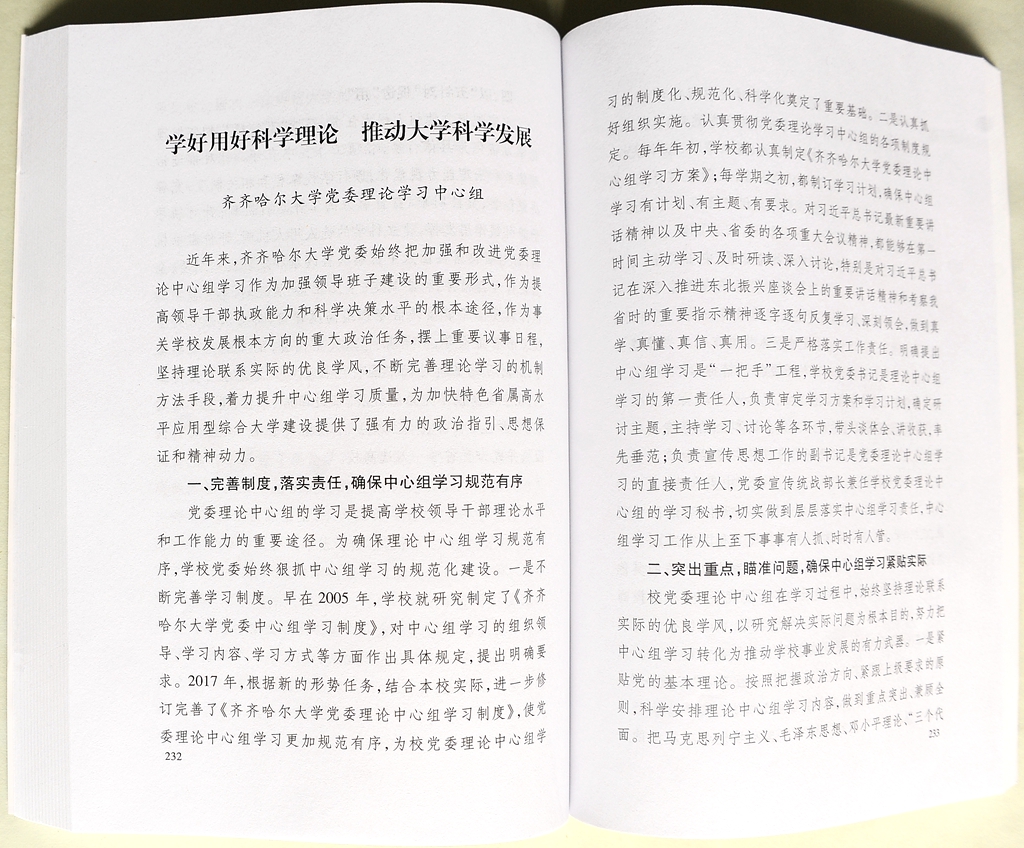 学好用好科学理论　推动大学科学发展
齐齐哈尔大学党委理论学习中心组
近年来，齐齐哈尔大学党委始终把加强和改进党委理
论中心组学习作为加强领导班子建设的重要形式，作为提
高领导干部执政能力和科学决策水平的根本途径，作为事
关学校发展根本方向的重大政治任务，摆上重要议事日程，
坚持理论联系实际的优良学风，不断完善理论学习的机制
方法手段，着力提升中心组学习质量，为加快特色省属高水
平应用型综合大学建设提供了强有力的政治指引、思想保
证和精神动力。
一、完善制度，落实责任，确保中心组学习规范有序
党委理论中心组的学习是提高学校领导干部理论水平
和工作能力的重要途径。为确保理论中心组学习规范有
序，学校党委始终狠抓中心组学习的规范化建设。一是不
断完善学习制度。早在 2005 年，学校就研究制定了《齐齐
哈尔大学党委中心组学习制度》，对中心组学习的组织领
导、学习内容、学习方式等方面作出具体规定，提出明确要
求。2017 年，根据新的形势任务，结合本校实际，进一步修
订完善了《齐齐哈尔大学党委理论中心组学习制度》，使党
委理论中心组学习更加规范有序，为校党委理论中心组学
232
习的制度化、规范化、科学化奠定了重要基础。二是认真抓
好组织实施。认真贯彻党委理论学习中心组的各项制度规
定。每年年初，学校都认真制定《齐齐哈尔大学党委理论中
心组学习方案》；每学期之初，都制订学习计划，确保中心组
学习有计划、有主题、有要求。对习近平总书记最新重要讲
话精神以及中央、省委的各项重大会议精神，都能够在第一
时间主动学习、及时研读、深入讨论，特别是对习近平总书
记在深入推进东北振兴座谈会上的重要讲话精神和考察我
省时的重要指示精神逐字逐句反复学习、深刻领会，做到真
学、真懂、真信、真用。三是严格落实工作责任。明确提出
中心组学习是“一把手”工程，学校党委书记是理论中心组
学习的第一责任人，负责审定学习方案和学习计划，确定研
讨主题，主持学习、讨论等各环节，带头谈体会、讲收获，率
先垂范；负责宣传思想工作的副书记是党委理论中心组学
习的直接责任人，党委宣传统战部长兼任学校党委理论中
心组的学习秘书，切实做到层层落实中心组学习责任，中心
组学习工作从上至下事事有人抓、时时有人管。
二、突出重点，瞄准问题，确保中心组学习紧贴实际
校党委理论中心组在学习过程中，始终坚持理论联系
实际的优良学风，以研究解决实际问题为根本目的，努力把
中心组学习转化为推动学校事业发展的有力武器。一是紧
贴党的基本理论。按照把握政治方向、紧跟上级要求的原
则，科学安排理论中心组学习内容，做到重点突出、兼顾全
面。把马克思列宁主义、毛泽东思想、邓小平理论、“三个代
233